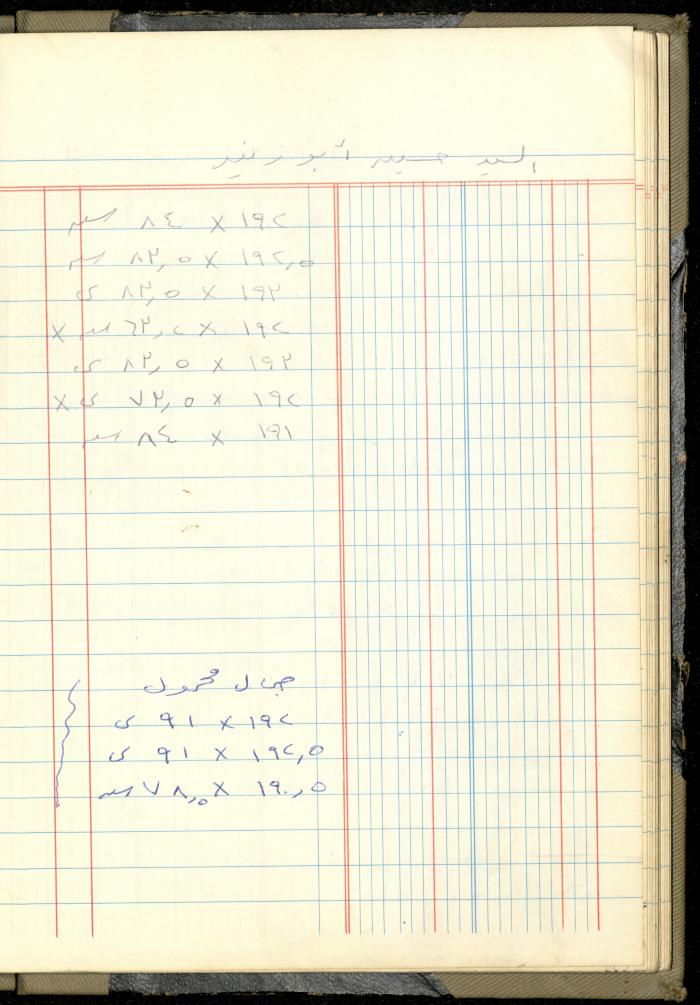 السيد حسين أبو زيد
١٩٢ × ٨٤ سم
١٩٢,٥ × ٨٢,٥ سم
١٩٢ × ٨٢,٥ ى
١٩٢ × ٦٢,٢ سم ×
١٩٢ × ٨٢,٥ ى
١٩٢ × ٧٢,٥ ى ×
١٩١ × ٨٤ سم
جمال محمول
١٩٢ × ٩١ ى
١٩٢,٥ × ٩١ ى
١٩٠,٥ × ٧٨,٥ سم